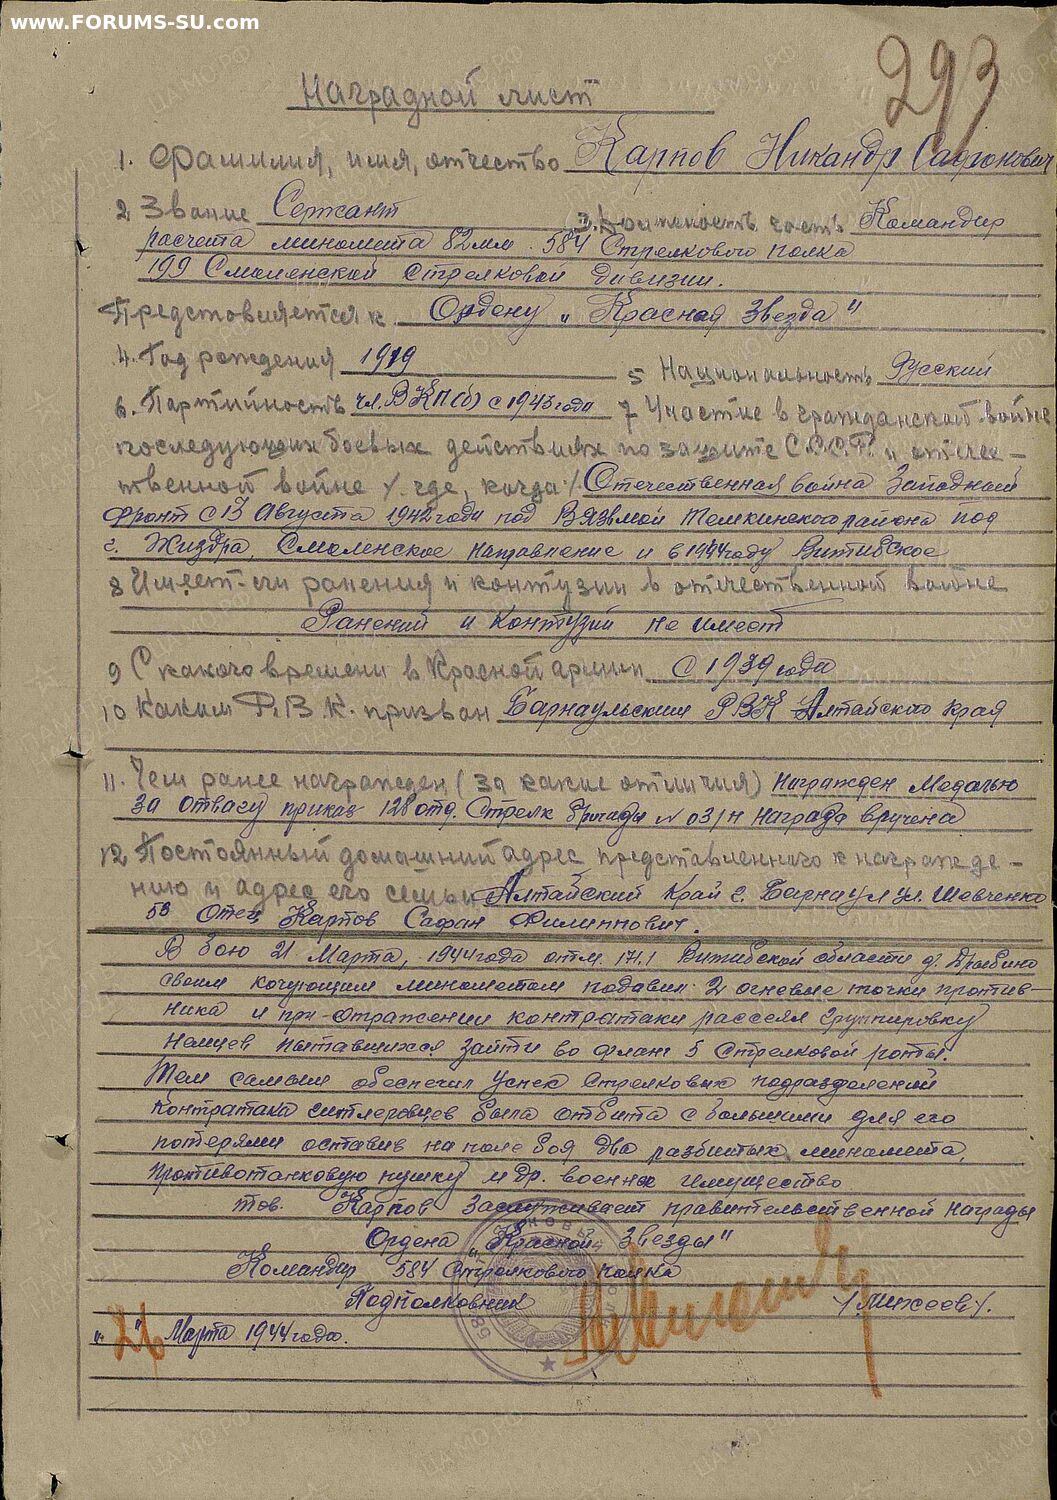 www.FORUMS-SU.com
293
Наградной лист
1. Фамилия, имя, отчество Карпов Никандр Сафонович
2 Звание Сержант 3. Должность часть Командир
расчета миномета 82мм. 584 Стрелкового полка
199 Смоленской стрелковой дивизии.
Предстовляется к Ордену „Красная Звезда"
4. Год рождения 1919 5 Национальность Русский
6. Партийность чл. ВКП(б) с 1943 года 7 Участие в гражданской войне
последующих боевых действиях по защите С.С.С.Р. и отечес-
твенной войне /. где, когда / Отечественная война Западный
фронт с 13 Августа 1942 года под Вязьмой Темкинского района под
г. Жиздра, Смоленское направление и в 1944 году Витибское
8 Имеет-ли ранения и контузии в отечественной войне
Ранений и Контузий не имеет
9 С какого времени в Красной армии с 1939 года
10 Каким Р.В.К. призван Барнаульским РВК Алтайского края
11. Чем ранее награжден (за какие отличия) Награжден Медалью
За отвагу приказ 128 отд. Стрелк бригады № 03/н Награда вручена
12 Постоянный домашний адрес представленного к награжде-
нию и адрес его семьи Алтайский Край г. Барнаул ул. Шевченко
53 Отец Карпов Сафан Филиппович.
В бою 21 Марта, 1944 года отм. 171.1 Витибской области д. Дрыбино
своим кочующим минометом подавил 2 огневые точки против-
ника и при отражении контратаки рассеял группировку
Немцев пытавшихся зайти во фланг 5 Стрелковой роты.
Тем самым обеспечил успех Стрелковых подразделений
Контратака гитлеровцев была отбита с большими для его
потерями оставив на поле боя два разбитых миномета,
противотанковую пушку и др. военное имущество
тов. Карпов Заслуживает правительственной Награды
Ордена „Красной Звезды"
Командир 584 Стрелкового полка
Подполковник / Михеев /.
„26" Марта 1944 года.